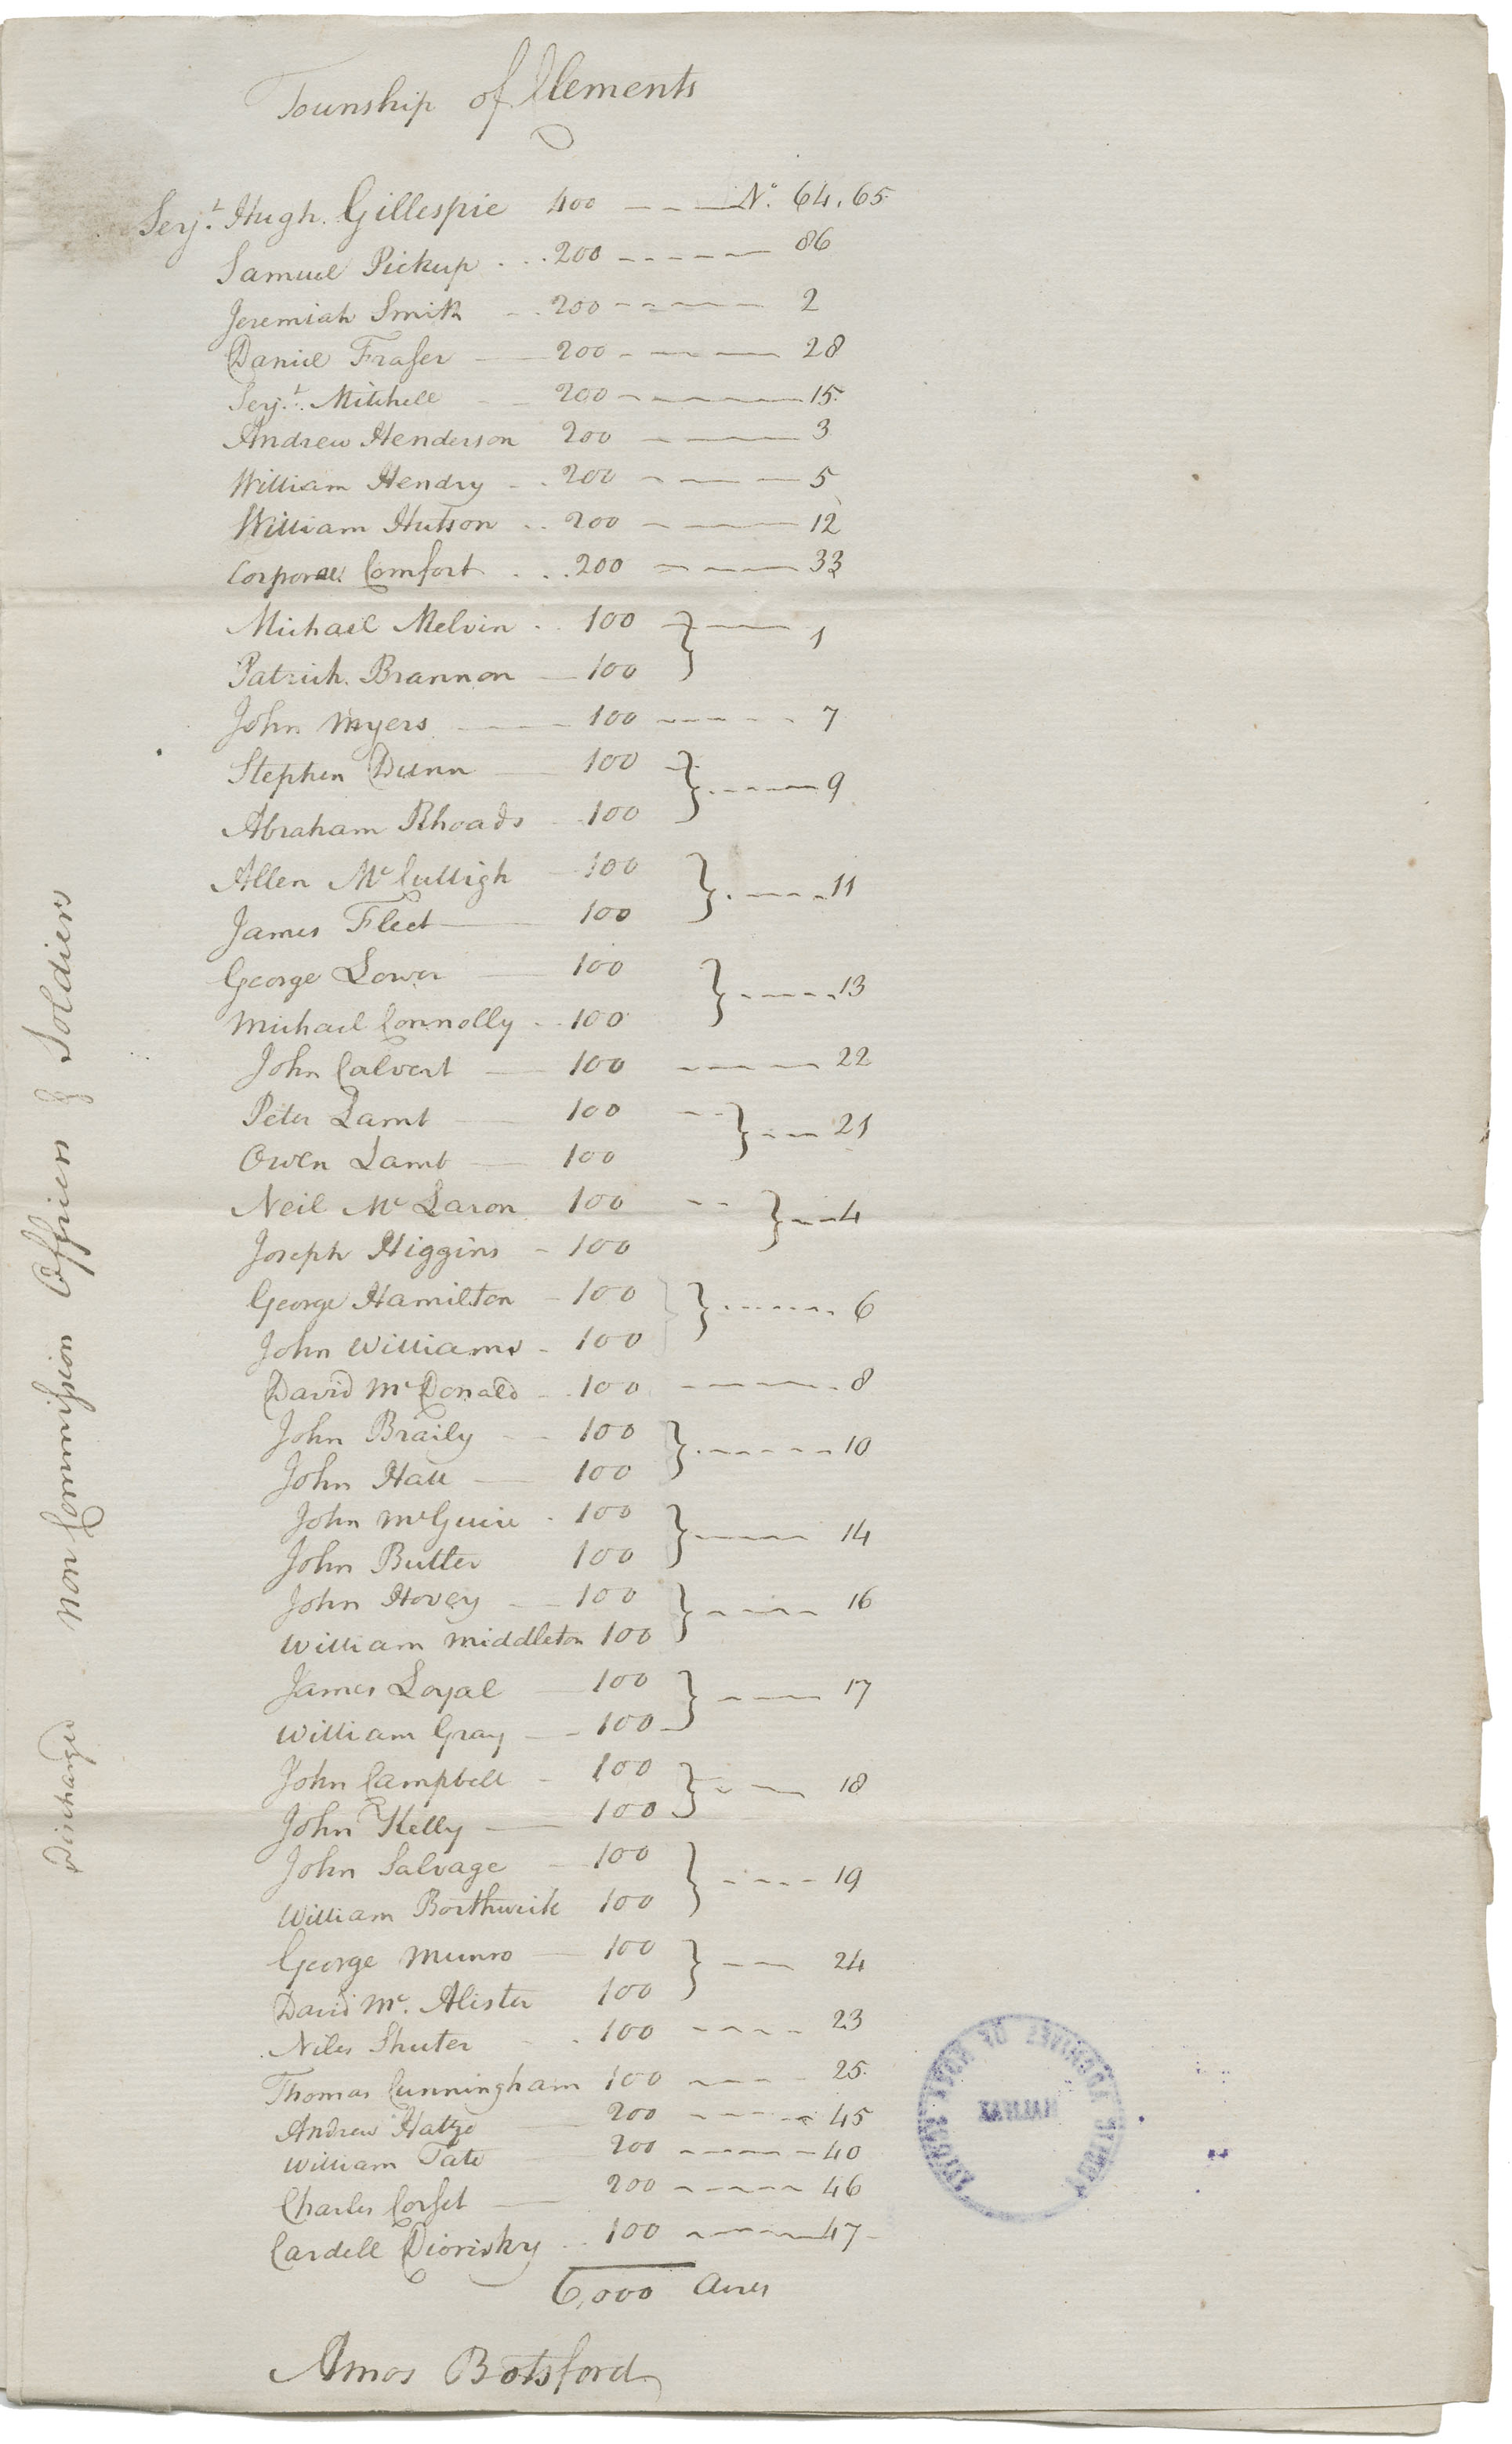 Township of Clements
Serj.t Hugh Gillespie 400 No. 64, 65
Samuel Pickup 200 86
Jeremiah Smith 200 2
Daniel Fraser 200 28
Serj.t Mitchell 200 15
Andrew Henderson 200 3
William Hendry 200 5
William Hutson 200 12
Corporal Comfort 200 33
Michael Melvin 100
Patrick Brannon 100 } 1
John Myers 100 7
Stephen Dunn 100
Abraham Rhoads 100 } 9
Allen McCulligh 100
James Fleet 100 } 11
George Lower 100
Michael Connolly 100 } 13
John Calvert 100 22
Peter Lamb 100
Owen Lamb 100 } 21
Neil Mc Laron 100
Joseph Higgins 100 } 4
George Hamilton 100
John Williams 100 } 6
David McDonald 100 8
John Braily 100
John Hall 100 } 10
John McGuire 100
John Butler 100 } 14
John Hovey 100
William Middleton 100 } 16
James Loyal 100
William Gray 100 } 17
John Campbell 100
John Kelly 100 } 18
John Salvage 100
William Borthwick 100 } 19
George Munro 100
David Mc. Alister 100 } 24
Niles Shuter 100 23
Thomas Cunningham 100 25
Andrew 200 45
William Tate 200 40
Charles 200 46
Cardell 100 47
6,000 Acres
Amos Botsford
Discharged Non Commission Officers & Soldiers
PUBLIC ARCHIVES OF NOVA SCOTIA
HALIFAX